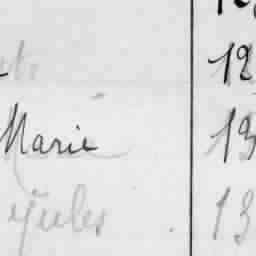 12
Marie 13
Jules 13